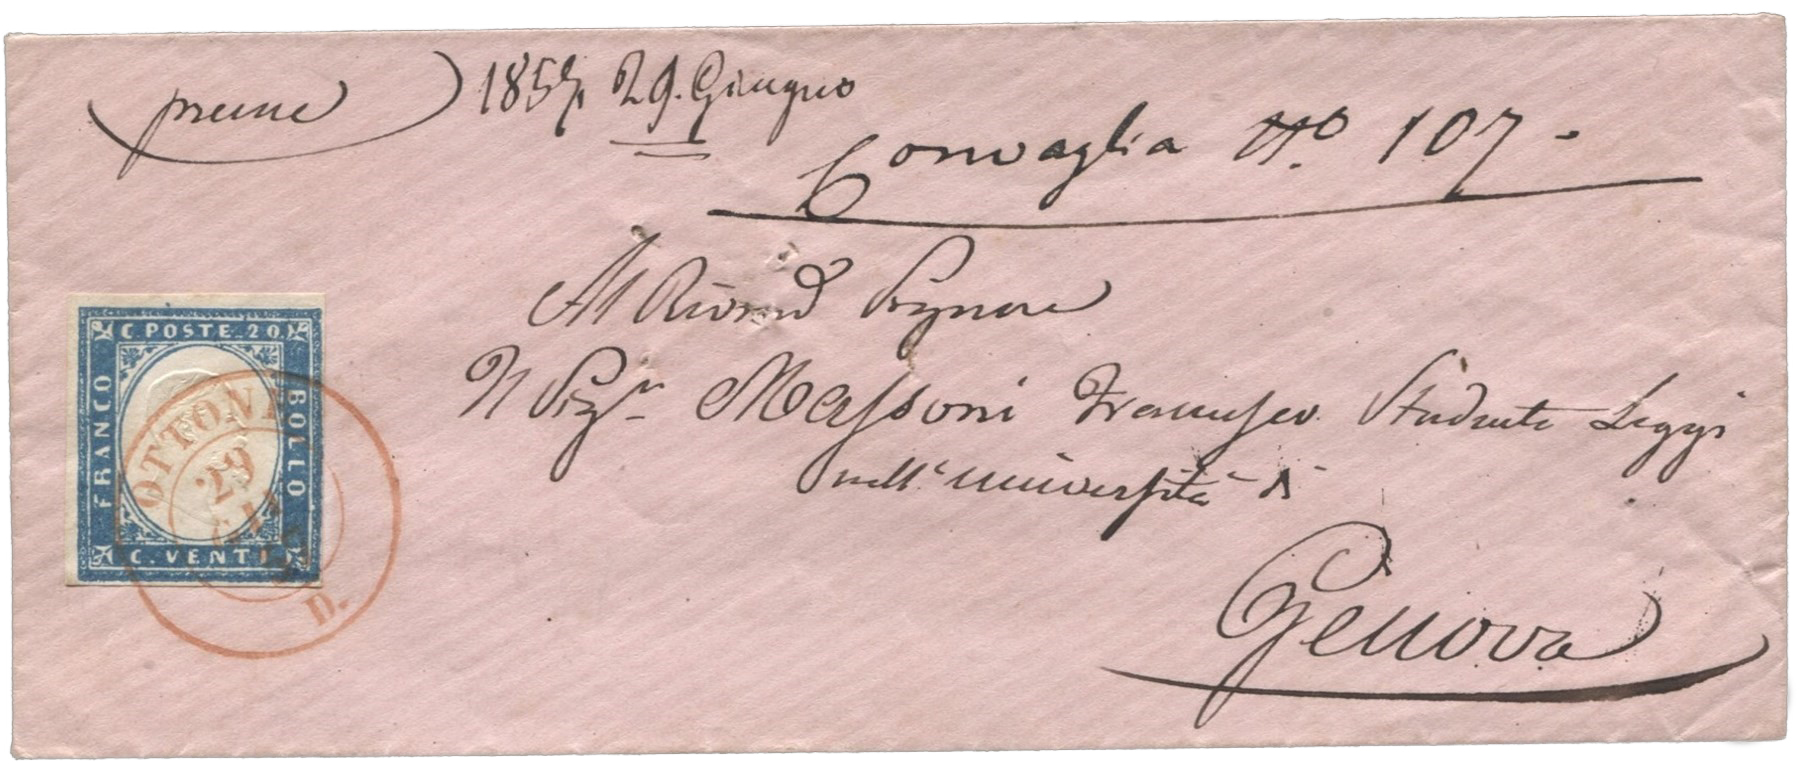 preme
1857, 29. Giugno
Convaglia No 107 -
Al Rivrnd Signore
Il Sigr Massoni Francesco Studente Leggi
nell' università di
Genova
C. POSTE. 20.
FRANCO
BOLLO
C. VENTI
OTTONE
29
GIU
D.